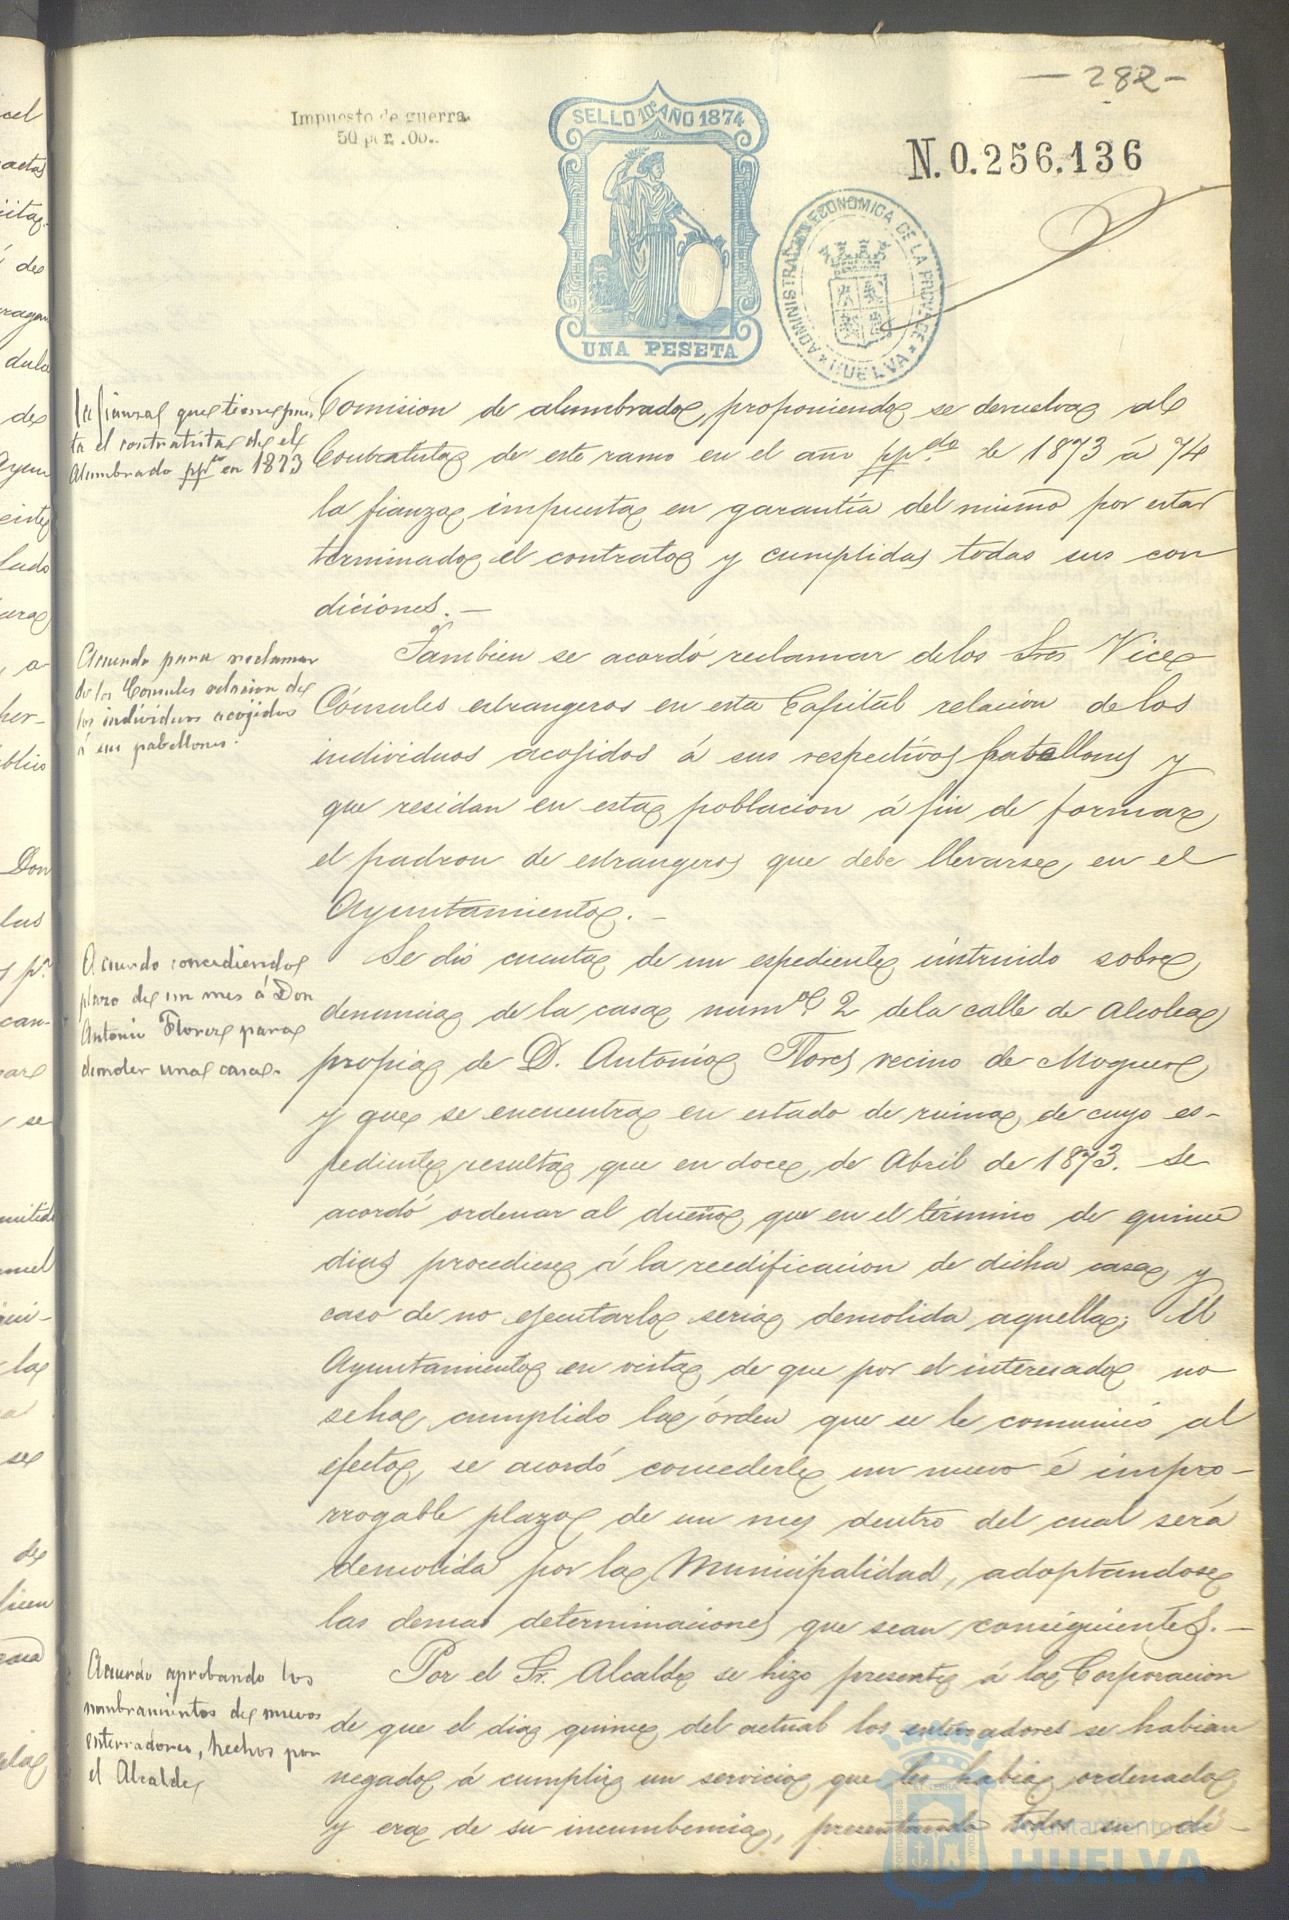 - 282 -
Impuesto de guerra.
50 por 100.
SELLO 10º AÑO 1874
UNA PESETA
N. 0.256.136
ADMINISTRACION ECONOMICA DE LA PROV. DE
* HUELVA *
la fianza que tiene pues
ta el contratista de el
Alumbrado pp.º en 1873
Comision de alumbrado, proponiendo se devuelva al
Contratista de este ramo en el año pp.do de 1873 á 74
la fianza impuesta en garantía del mismo por estar
terminado el contrato y cumplidas todas sus con
diciones. —
Acuerdo para reclamar
de los Consules relacion de
los individuos acojidos
á sus pabellones.
Tambien se acordó reclamar de los Sres Vice
Cónsules estrangeros en esta Capital relacion de los
individuos acojidos á sus respectivos pabellones y
que residan en esta poblacion á fin de formar
el padron de estrangeros que debe llevarse en el
Ayuntamiento. —
Acuerdo concediendo
plazo de un mes á Don
Antonio Florez para
demoler una casa.
Se dio cuenta de un espediente instruido sobre
denuncia de la casa num.º 2 de la calle de Alcolea
propia de D. Antonio Flores vecino de Moguer
y que se encuentra en estado de ruina, de cuyo es-
pediente resulta que en doce de Abril de 1873. se
acordó ordenar al dueño que en el término de quince
dias procediese á la reedificacion de dicha casa y
caso de no ejecutarlo seria demolida aquella; El
Ayuntamiento en vista de que por el interesado no
se ha cumplido la órden que se le comunicó al
efecto, se acordó concederle un nuevo é impro-
rrogable plazo de un mes dentro del cual será
demolida por la Municipalidad, adoptandose
las demas determinaciones que sean consiguientes. —
Acuerdo aprobando los
nombramientos de nuevos
enterradores, hechos por
el Alcalde
Por el Sr. Alcalde se hizo presente á la Corporacion
de que el dia quince del actual los enterradores se habian
negado á cumplir un servicio que les habia ordenado
y era de su incumbencia, presentando todos su di-
Ayuntamiento de
HUELVA